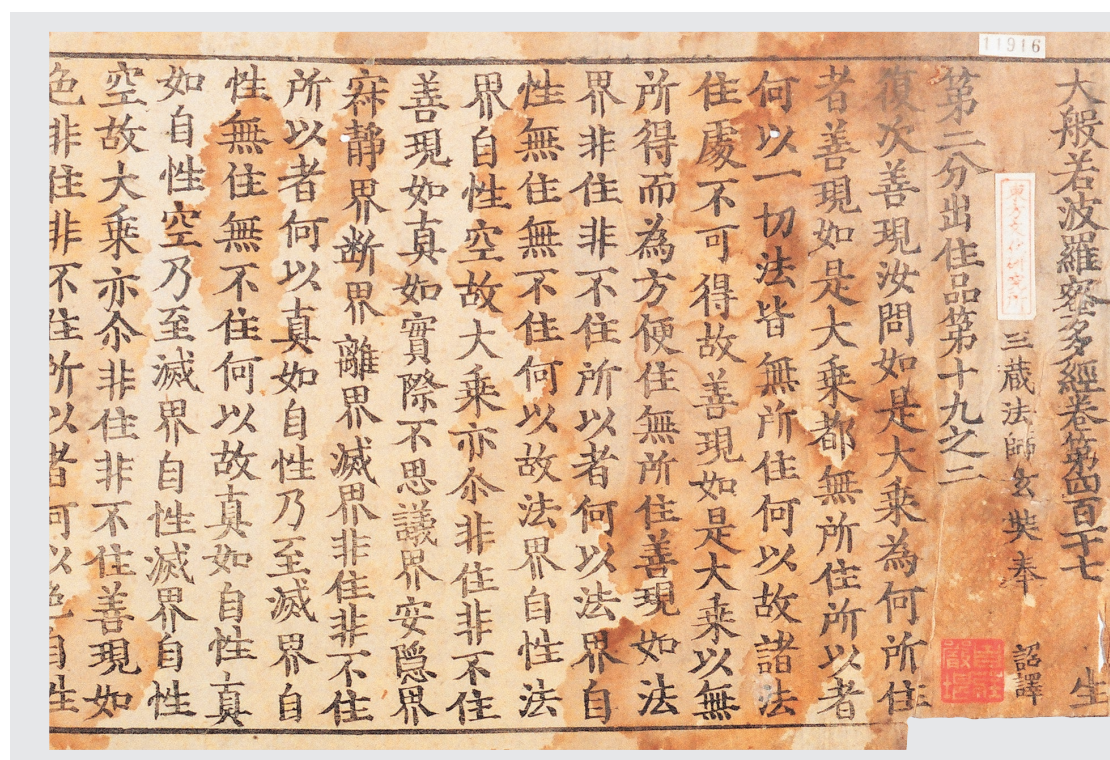 11916
大般若波羅蜜多經卷第四百十七 生
三蔵法師玄奘奉 詔譯
第二分出住品第十九之二
復次善現汝問如是大乗為何所住
者善現如是大乗都無所住所以者
何以一切法皆無所住何以故諸法
住處不可得故善現如是大乗以無
所得而為方便住無所住善現如法
界非住非不住所以者何以法界自
性無住無不住何以故法界自性法
界自性空故大乗亦尒非住非不住
善現如真如實際不思議界安隱界
寂静界断界離界滅界非住非不住
所以者何以真如自性乃至滅界自
性無住無不住何以故真如自性真
如自性空乃至滅界自性滅界自性
空故大乗亦尒非住非不住善現如
色非住非不住所以者何以色自性